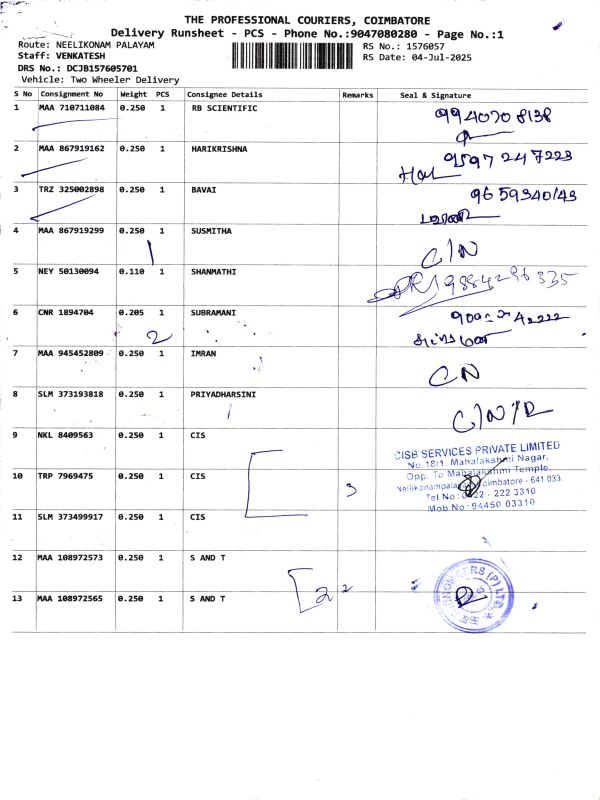 THE PROFESSIONAL COURIERS, COIMBATORE
Delivery Runsheet - PCS - Phone No.:9047080280 - Page No.:1
Route: NEELIKONAM PALAYAM
RS No.: 1576057
Staff: VENKATESH
RS Date: 04-Jul-2025
DRS No.: DCJB157605701
Vehicle: Two Wheeler Delivery
S No Consignment No Weight PCS Consignee Details Remarks Seal & Signature
1 MAA 710711084 0.250 1 RB SCIENTIFIC 9940708138
2 MAA 867919162 0.250 1 HARIKRISHNA 9597247223
3 TRZ 325002898 0.250 1 BAVAI 9659340143
4 MAA 867919299 0.250 1 SUSMITHA C/N
1
5 NEY 50130094 0.110 1 SHANMATHI 9884296335
6 CNR 1894704 0.205 1 SUBRAMANI
2
7 MAA 945452809 0.250 1 IMRAN CN
8 SLM 373193818 0.250 1 PRIYADHARSINI C/N/R
9 NKL 8409563 0.250 1 CIS
CISB SERVICES PRIVATE LIMITED
No.18/1. Mahalakshmi Nagar,
10 TRP 7969475 0.250 1 CIS 3
Opp. To Mahalakshmi Temple,
Neelikonampalayam, Coimbatore - 641 033.
Tel No: 0422 - 222 3310
Mob No: 94450 03310
11 SLM 373499917 0.250 1 CIS
12 MAA 108972573 0.250 1 S AND T
2 2
13 MAA 108972565 0.250 1 S AND T